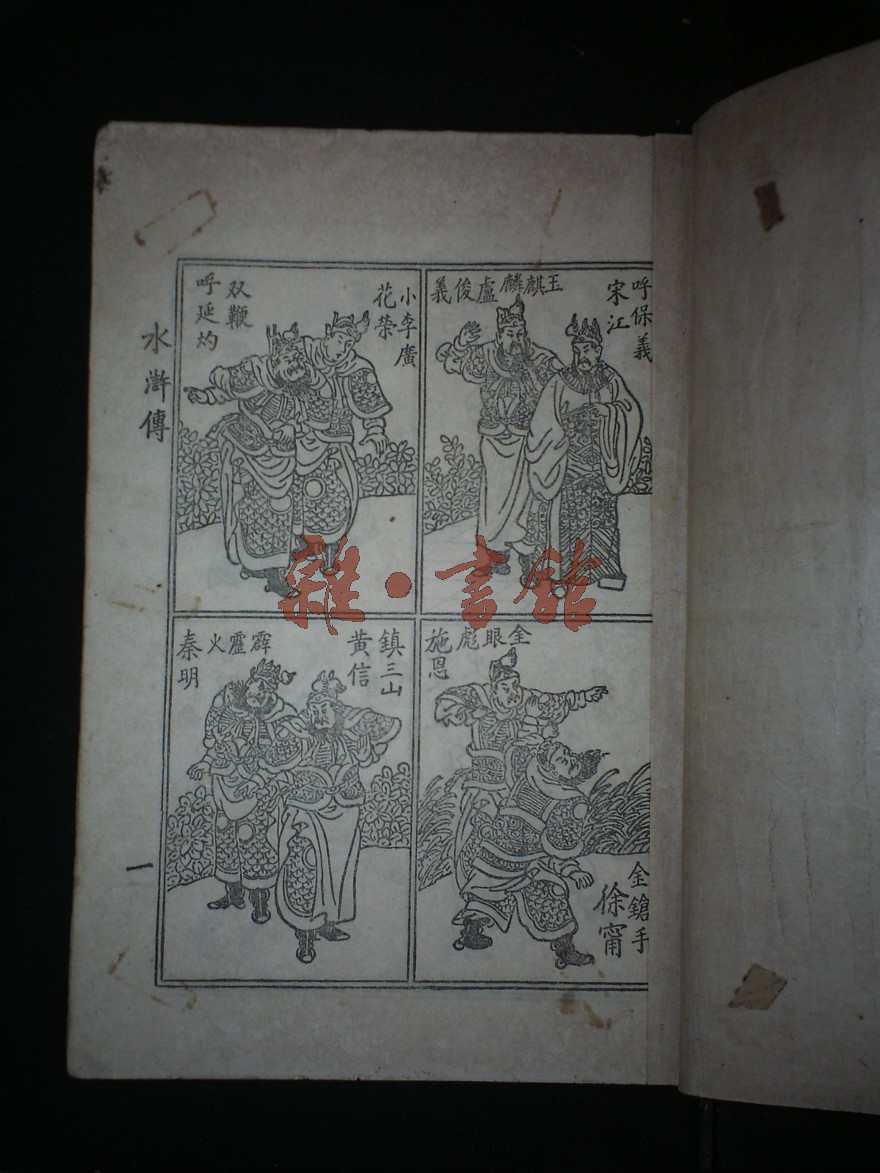 呼保義
宋江
玉麒麟盧俊義
小李廣
花榮
双鞭
呼延灼
金眼彪
施恩
金鎗手
徐甯
鎮三山
黄信
霹靂火
秦明
水滸傳
一
雜·書館